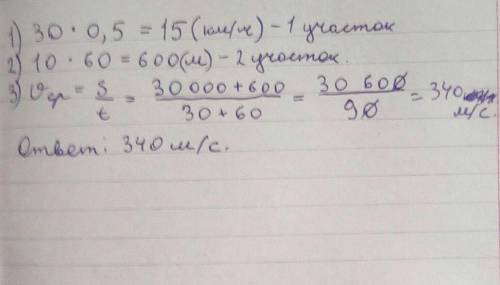 1) 30 · 0,5 = 15 (км/ч) - 1 участок
2) 10 · 60 = 600 (м) - 2 участок.
3) Vср = S/t = 30 000 + 600 / 30 + 60 = 30 600 / 90 = 340 м/с.
Ответ: 340 м/с.